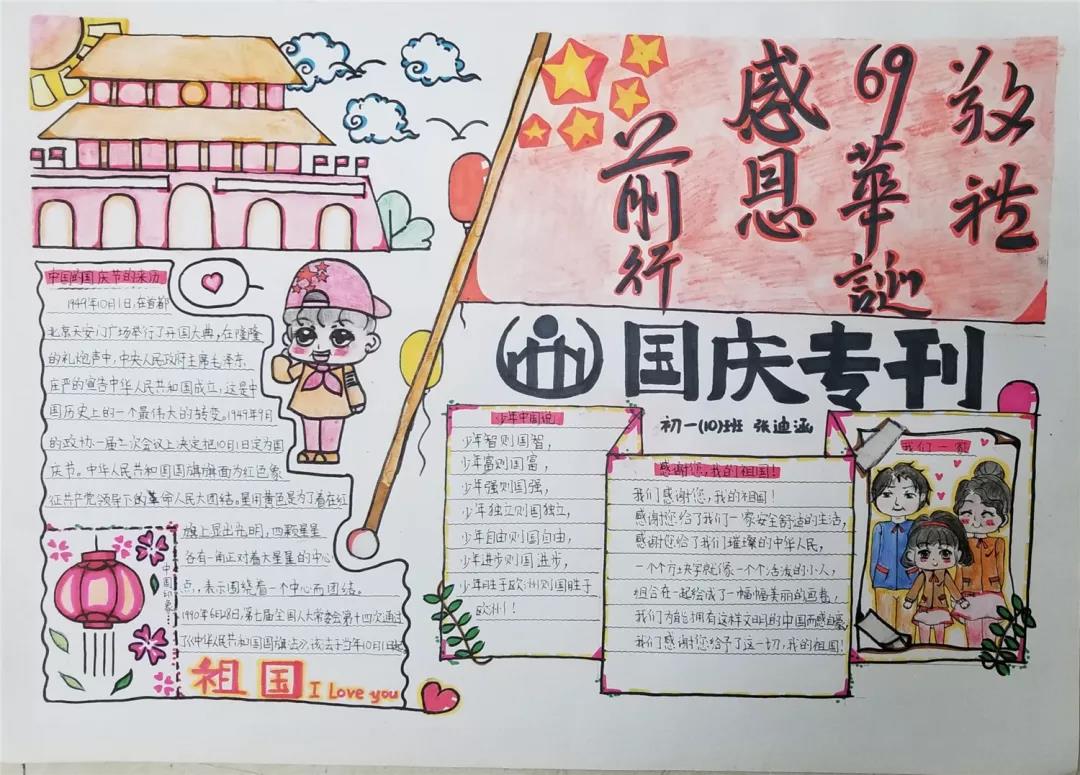 敬礼
69華誕
感恩
前行
国庆专刊
初一(10)班 张迪涵
中国的国庆节的来历
1949年10月1日,在首都
北京天安门广场举行了开国大典,在隆隆
的礼炮声中,中央人民政府主席毛泽东
庄严的宣告中华人民共和国成立,这是中
国历史上的一个最伟大的转变,1949年9月
的政协一届一次会议上决定把10月1日定为国
庆节。中华人民共和国国旗旗面为红色象
征共产党领导下的革命人民大团结。星用黄色是为了着在红
旗上显出光明,四颗星星
各有一角正对着大星星的中心
点,表示围绕着一个中心而团结。
1990年6月28日,第七届全国人大常委会第十四次通过
了《中华人民共和国国旗法》,该法于当年10月1日起
中国印象
祖国 I Love you
少年中国说
少年智则国智,
少年富则国富,
少年强则国强,
少年独立则国独立,
少年自由则国自由,
少年进步则国进步,
少年胜于欧洲则国胜于
欧洲!
感谢您,我的祖国!
我们感谢您,我的祖国!
感谢您给了我们一家安全舒适的生活,
感谢您给了我们璀璨的中华人民,
一个个方块字就像一个个活泼的小人,
组合在一起给成了一幅幅美丽的画卷,
我们为能拥有这样文明的中国而感自豪,
我们感谢您给予了这一切,我的祖国!
我们一家